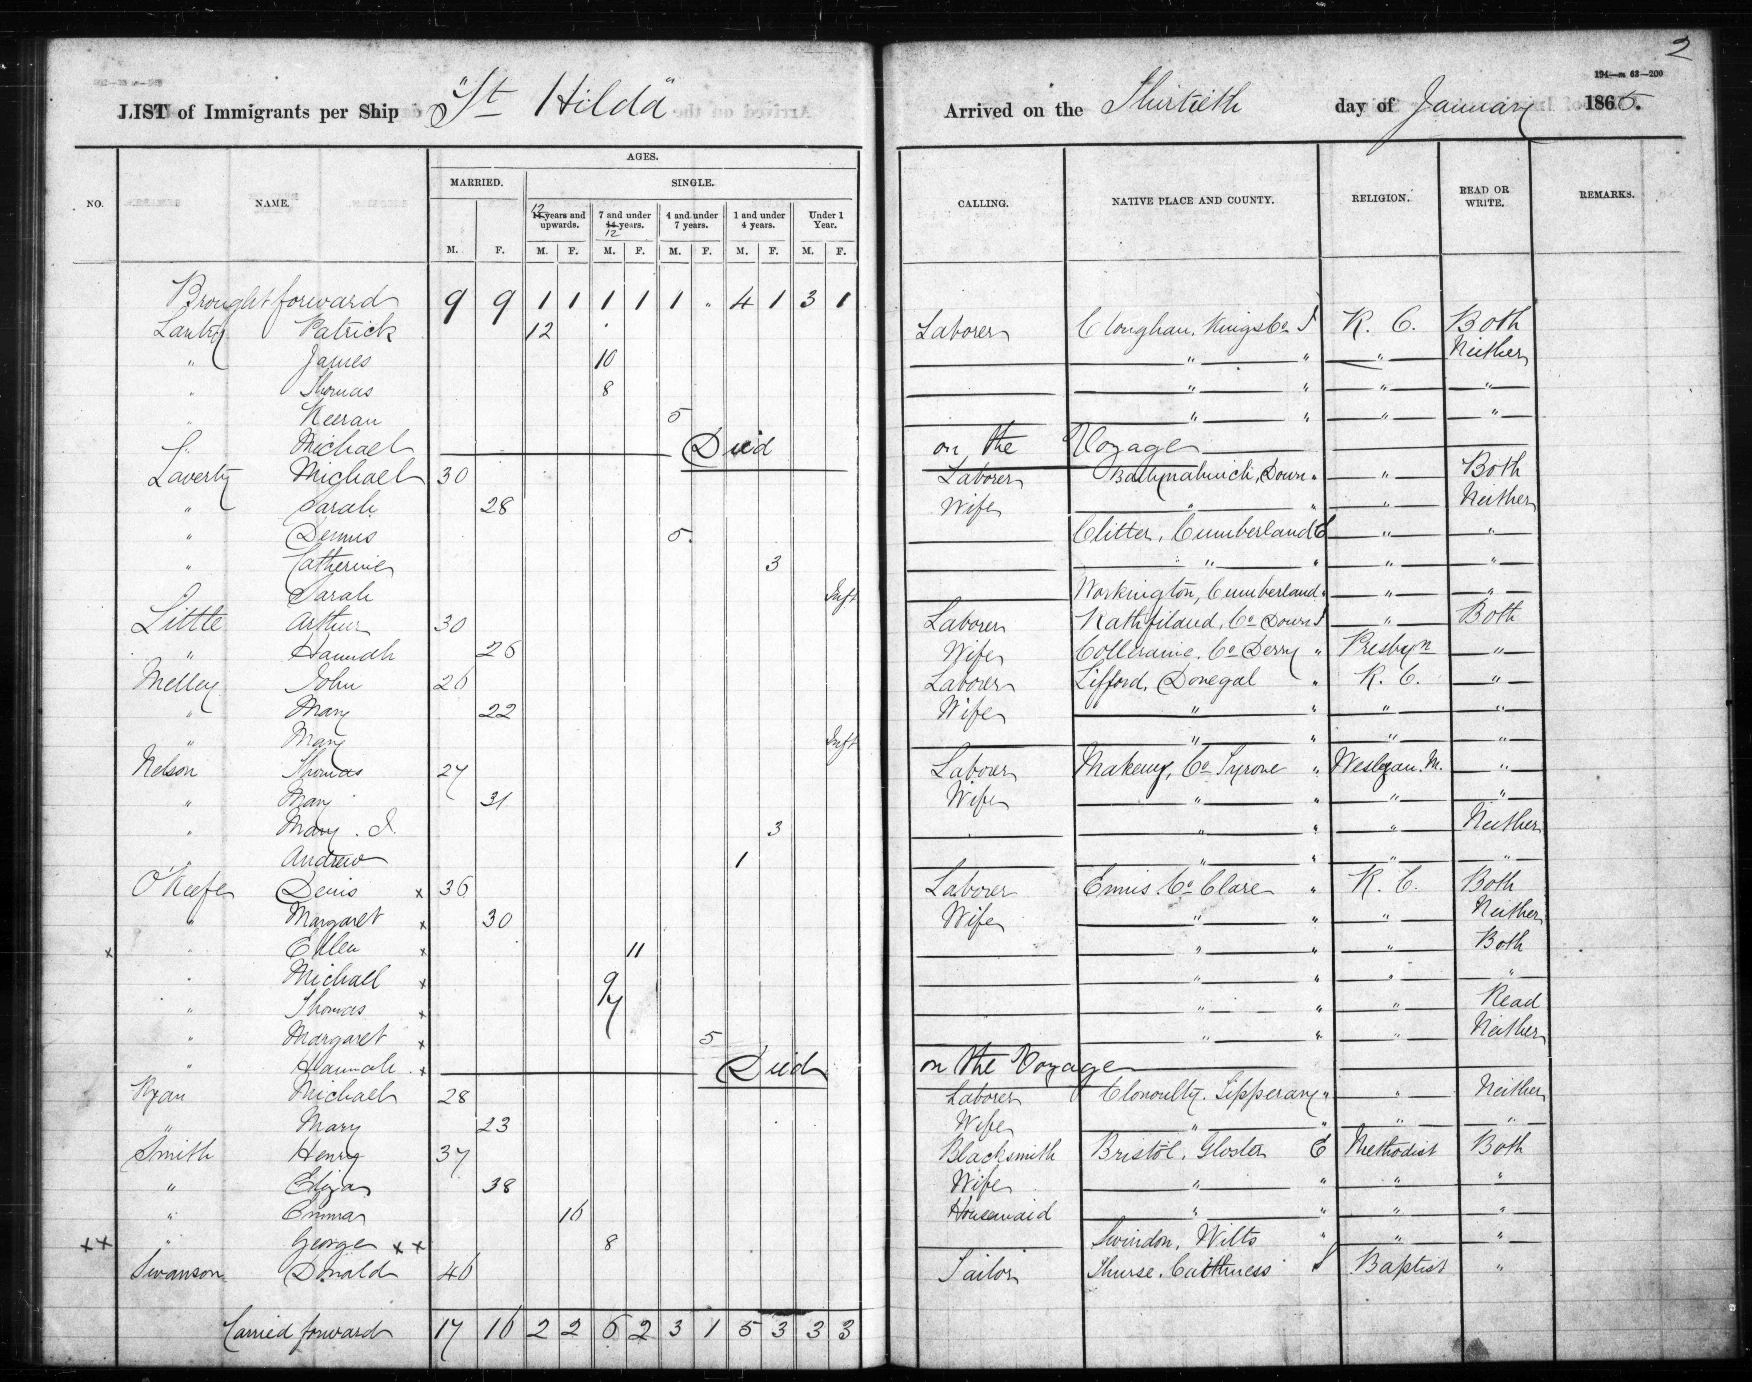 2
194—m 63—200
LIST of Immigrants per Ship "St Hilda" Arrived on the Thirtieth day of January 1865.
AGES.
MARRIED. SINGLE.
NO. NAME. 12 years and upwards. 7 and under 12 years. 4 and under 7 years. 1 and under 4 years. Under 1 Year. CALLING. NATIVE PLACE AND COUNTY. RELIGION. READ OR WRITE. REMARKS.
M. F. M. F. M. F. M. F. M. F. M. F.
Brought forward 9 9 1 1 1 1 1 " 4 1 3 1
Patrick 12 Laborer Cloughan, Kings Co I R. C. Both
" James 10 " " " Neither
" Thomas 8 " " " "
" Keeran 5 " " " "
" Michael Died on the Voyage
Laverty Michael 30 Laborer Ballynahinch, Down " " Both
" Sarah 28 Wife " " " Neither
" Dennis 5 Clitter, Cumberland E " "
" Catherine 3 " " " "
" Sarah Inft Workington, Cumberland " " "
Little Arthur 30 Laborer Rathfiland, Co Down I " Both
" Hannah 26 Wife Colleraine, Co Derry " Presbyn "
Melley John 26 Laborer Lifford, Donegal " R. C. "
" Mary 22 Wife " " " "
" Mary Inft " " " "
Nelson Thomas 27 Laborer Co Tyrone " Wesleyan M. "
" Mary 31 Wife " " " "
" Mary J. 3 " " " Neither
" Andrew 1 " " " "
O'Keefe Denis x 36 Laborer Ennis, Co Clare " R. C. Both
" Margaret x 30 Wife " " " Neither
x " Ellen x 11 " " " Both
" Michael x 9 " " " "
" Thomas x 7 " " " Read
" Margaret x 5 " " " Neither
" Hannah x Died on the Voyage
Ryan Michael 28 Laborer Clonoulty, Tipperary " " Neither
" Mary 23 Wife " " " "
Smith Henry 37 Blacksmith Bristol, Gloster E Methodist Both
" Eliza 38 Wife " " " "
" Emma 16 Housemaid " " " "
xx " George xx 8 Swindon, Wilts " " "
Swanson Donald 46 Tailor Thurse, Caithness S Baptist "
Carried forward 17 16 2 2 6 2 3 1 5 3 3 3